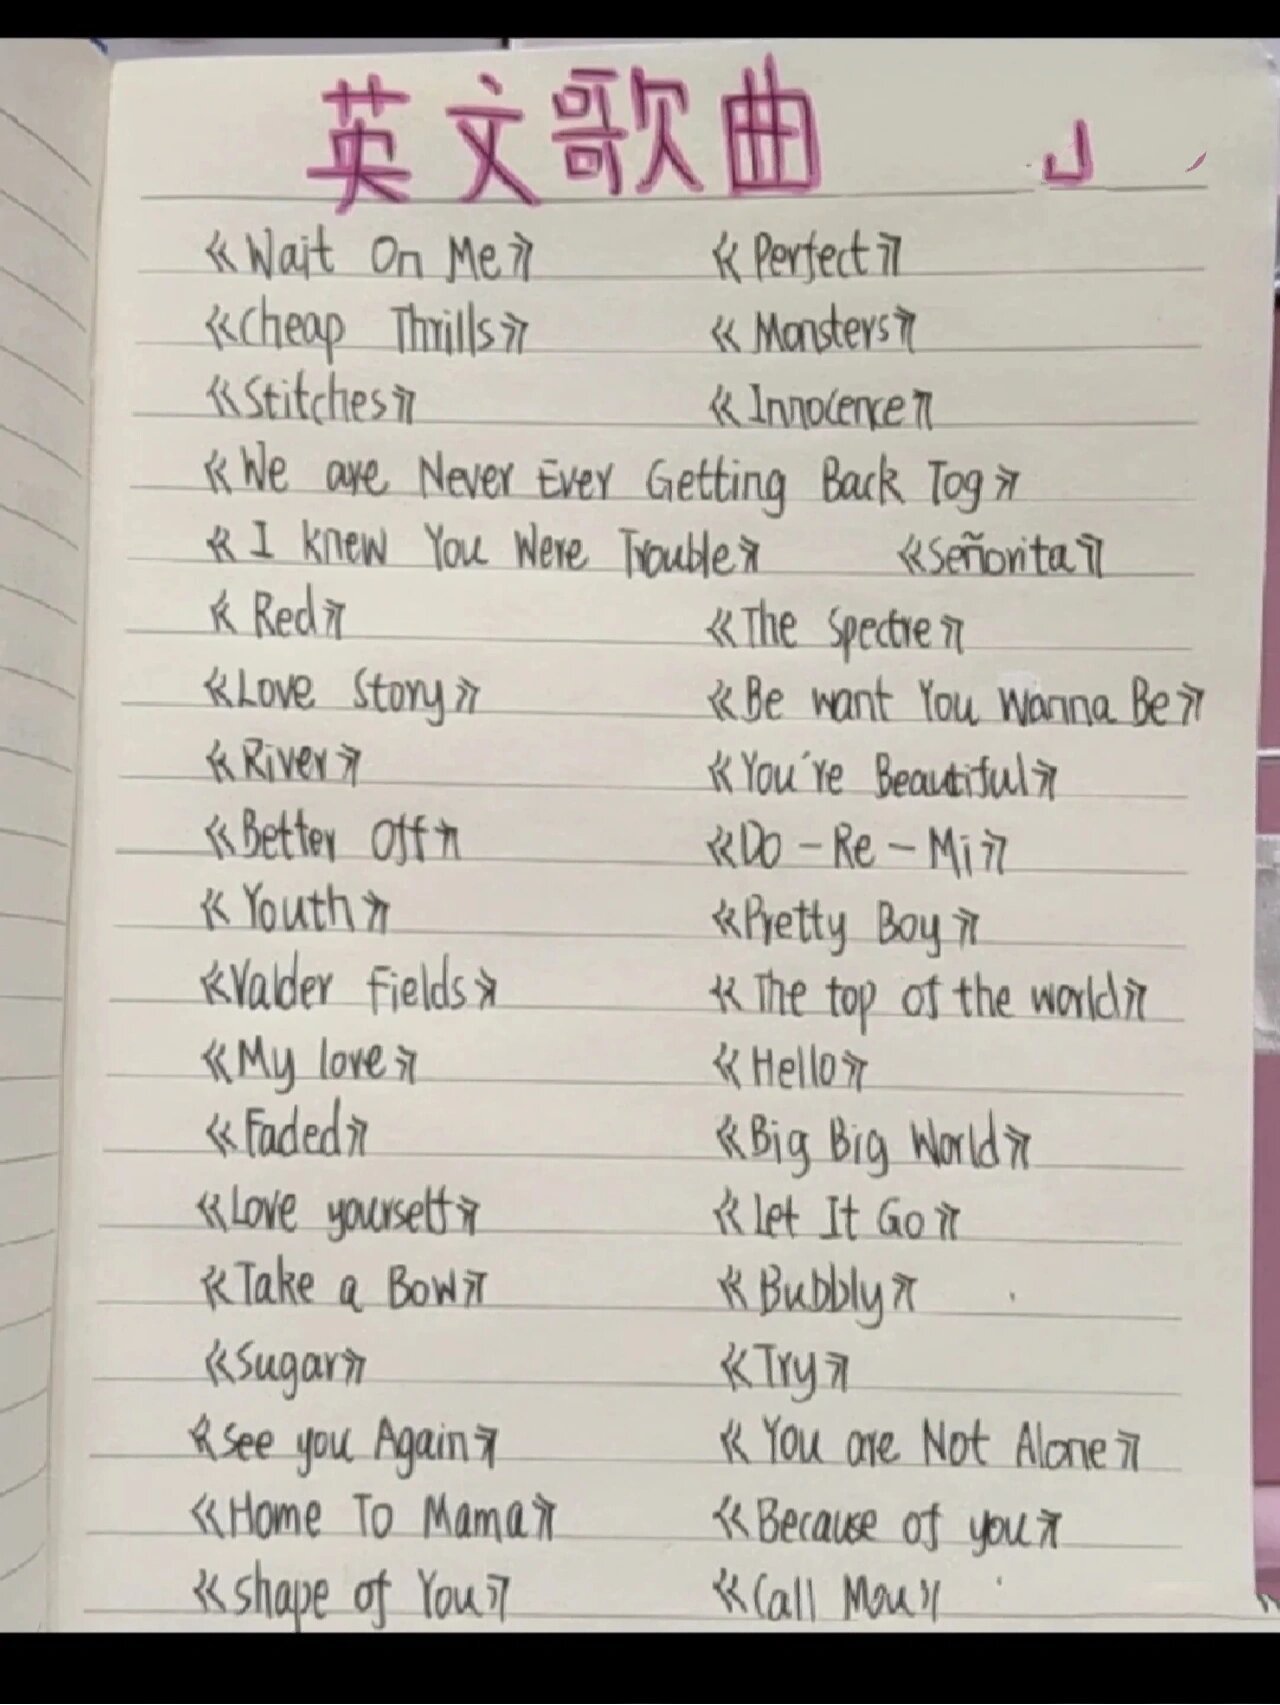 英文歌曲 」
《Wait On Me》 《Perfect》
《Cheap Thrills》 《Monsters》
《Stitches》 《Innocence》
《We are Never Ever Getting Back Tog》
《I knew You Were Trouble》 《Señorita》
《Red》 《The Spectre》
《Love Story》 《Be want You Wanna Be》
《River》 《You're Beautiful》
《Better Off》 《Do-Re-Mi》
《Youth》 《Pretty Boy》
《Valder Fields》 《The top of the world》
《My love》 《Hello》
《Faded》 《Big Big World》
《Love yourself》 《let It Go》
《Take a Bow》 《Bubbly》
《Sugar》 《Try》
《See you Again》 《You are Not Alone》
《Home To Mama》 《Because of you》
《shape of You》 《Call